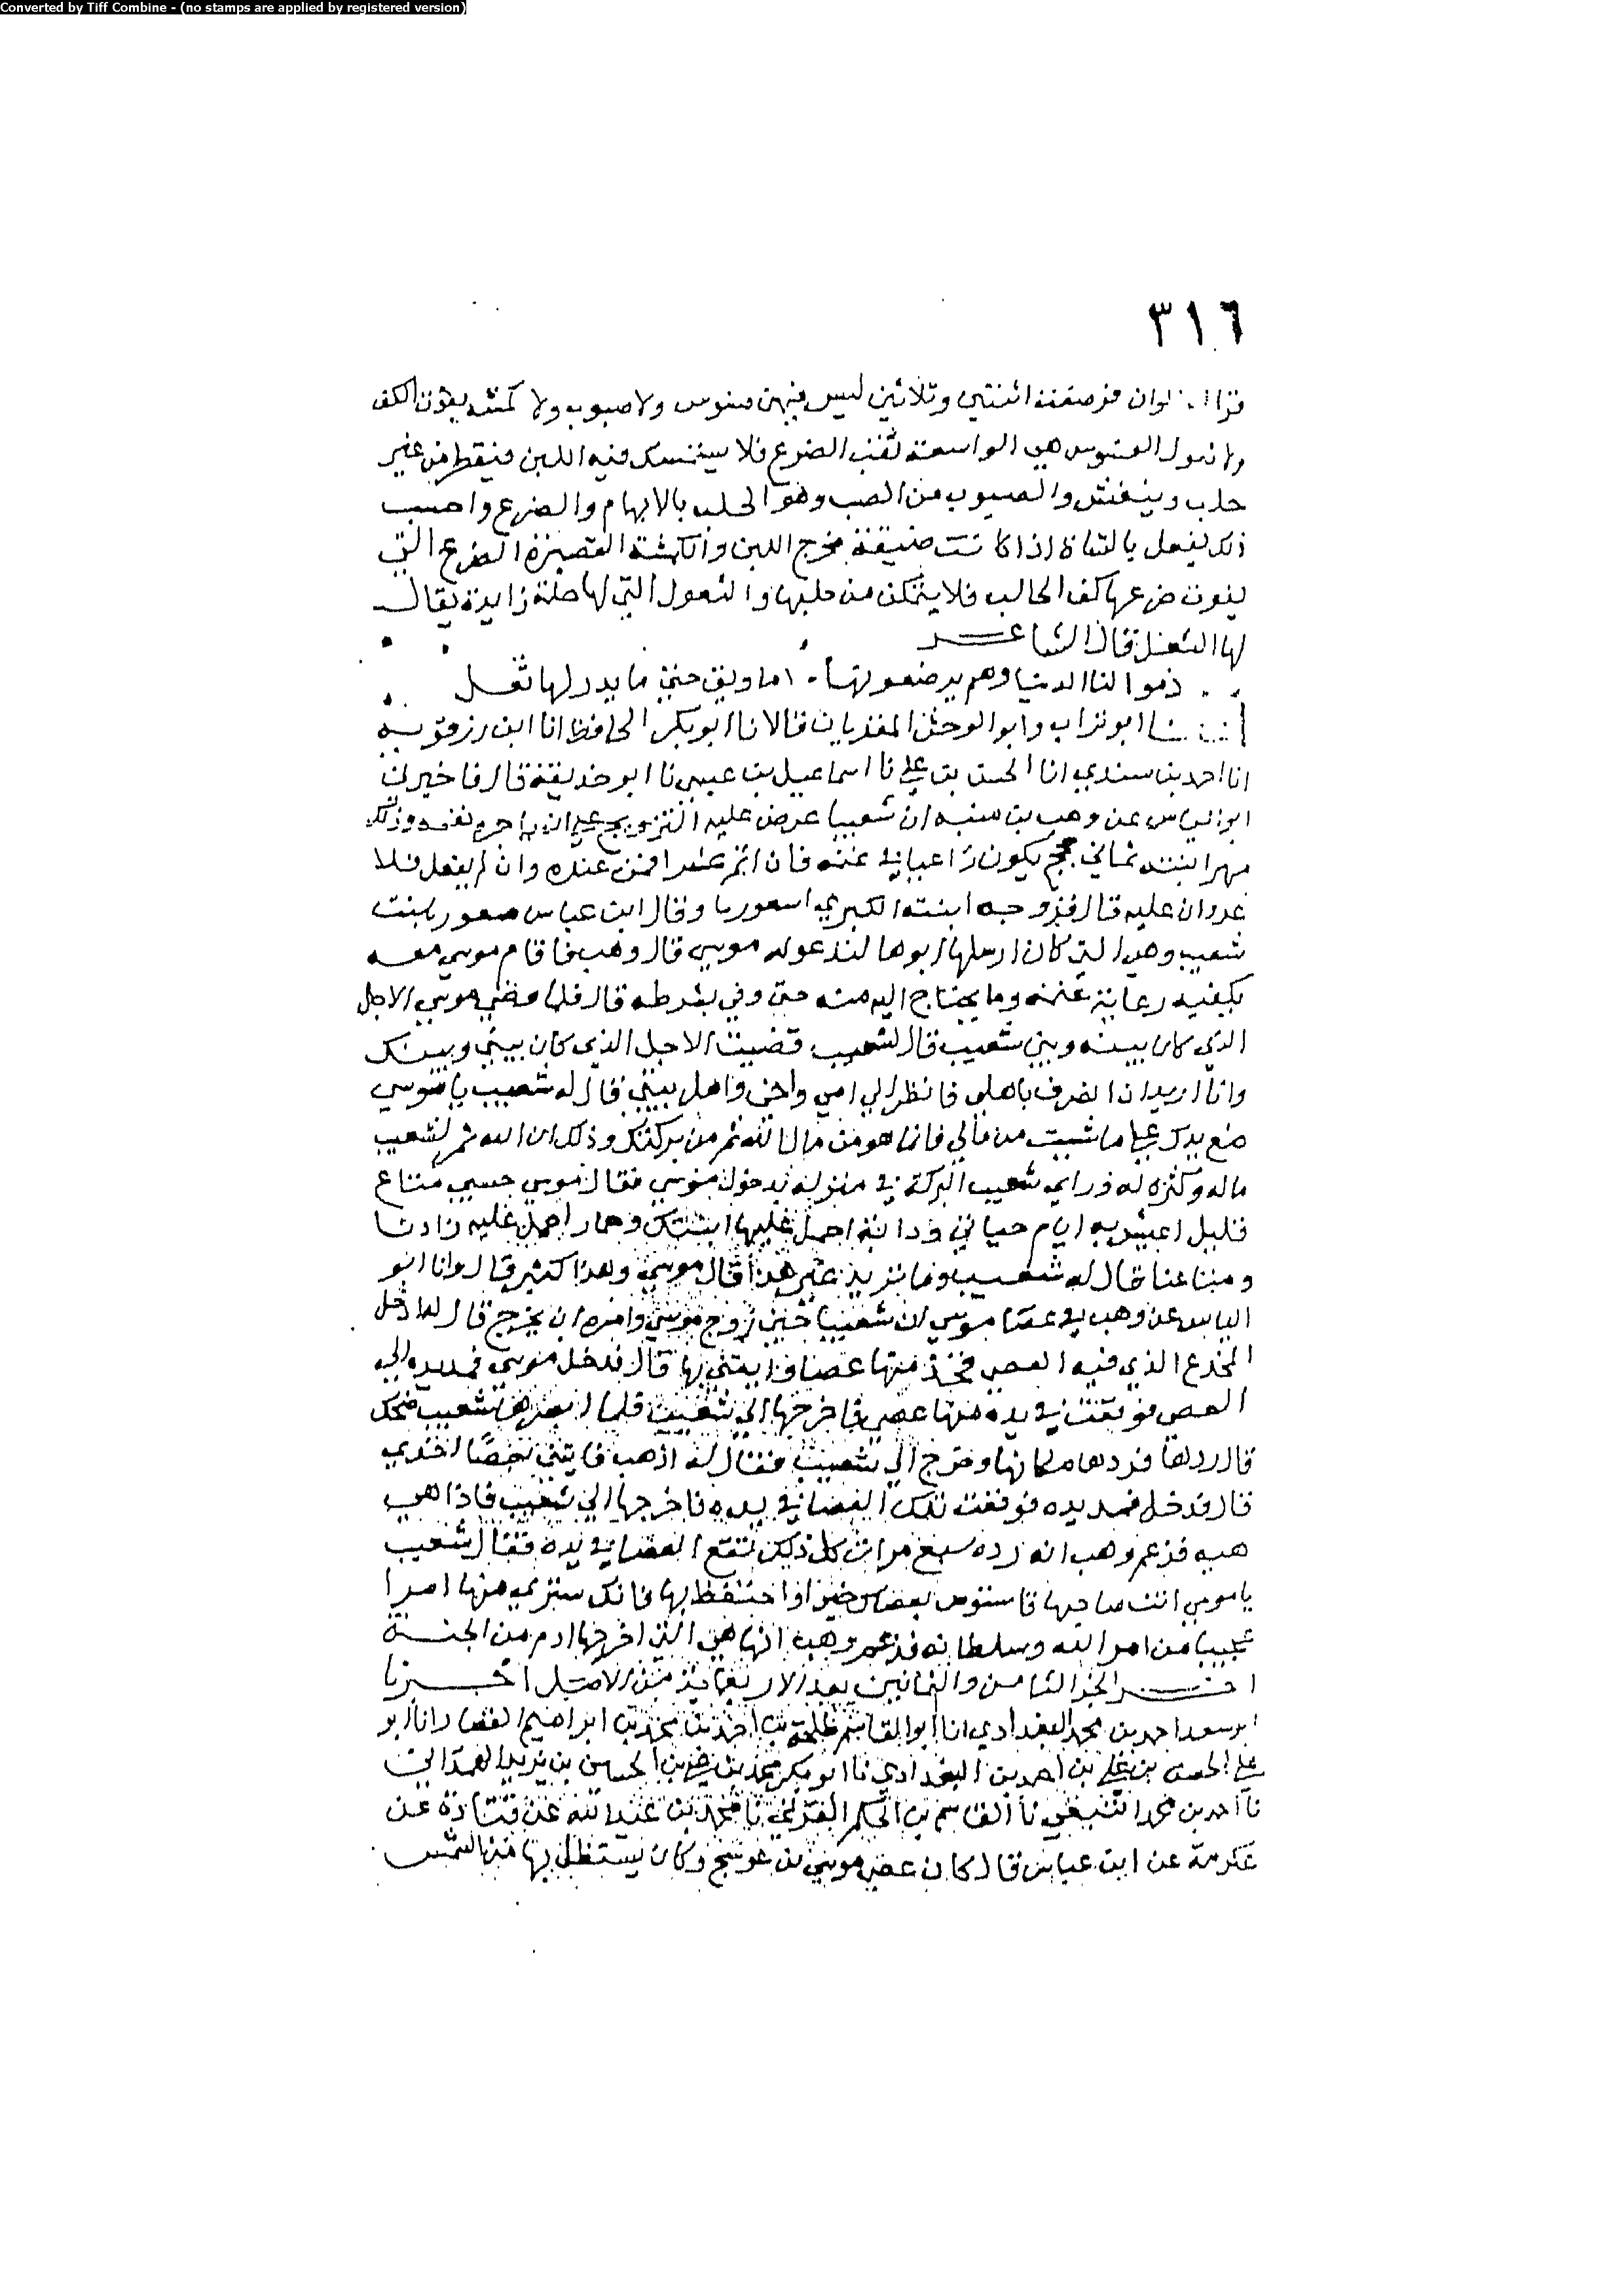 Converted by Tiff Combine - (no stamps are applied by registered version)
٣١٦
اثنتين وثلاثين ليس فيهن فشوش ولا ضبوب ولا كمشه يفوت الكف
ولا ثعول الفشوش هي الواسعة ثقب الضرع فلا يستمسك فيه اللبن فينقط من غير
حلب وينفش والضبوب من الضب وهو الحلب بالابهام والضرع واحسب
ذلك يفعل بالشاة اذا كانت ضيقة مخرج اللبن والكمشة القصيرة الضرع التي
يفوت ضرعها كف الحالب فلا يتمكن من حلبها والثعول التي لها حلمة زايدة يقال
لها الثعل قال الشاعر
ذموا لنا الدنيا وهم يرضعونها افاويق حتى ما يدر لها ثعل
ابو تراب وابو الوحش المقريان قالا نا ابو بكر الحافظ انا ابن رزقويه
انا احمد بن سندي انا الحسن بن علي نا اسماعيل بن عيسى نا ابو حذيفة قال فاخبرني
ابو الياس عن وهب بن منبه ان شعيبا عرض عليه التزويج على ان ياجره نفسه وذلك
مهر ابنته ثماني حجج يكون راعيا في غنمه فان اتم عشرا فمن عنده وان لم يفعل فلا
عدوان عليه قال فزوجه ابنته الكبرى صفوريا وقال ابن عباس صفوريا بنت
شعيب وهي التي كان ارسلها ابوها لتدعو له موسى قال وهب فاقام موسى معه
يكفيه رعاية غنمه وما يحتاج اليه منه حتى وفي بشرطه قال فلما قضى موسى الاجل
الذي كان بينه وبين شعيب قال لشعيب قضيت الاجل الذي كان بيني وبينك
وانا اريد ان انصرف باهلي فانظر الي امي واخي واهل بيتي قال له شعيب يا موسى
ضع يدك على ما شيت من مالي فانما هو من مال الله ثم من بركتك وذلك ان الله ثمر لشعيب
ماله وكثره له وراى شعيب البركة في منزله بدخول موسى فقال موسى حسبي متاع
قليل اعيش به ايام حياتي ودابة احمل عليها ابنتك وحمار احمل عليه زادنا
ومتاعنا قال له شعيب وما تريد غير هذا قال موسى وهذا كثير قال وانا ابو
الياس عن وهب في عصا موسى ان شعيبا حين زوج موسى وامره ان يخرج قال له ادخل
المخدع الذي فيه العصي فخذ منها عصا وايتني بها قال فدخل موسى فمد يده الى
العصي فوقعت في يده منها عصى فاخرجها الى شعيب فلما ابصرها شعيب ضحك
قال ردها فردها مكانها وخرج الى شعيب فقال له اذهب فايتني بعصا اخرى
قال فدخل فمد يده فوقعت تلك العصا في يده فاخرجها الى شعيب فاذا هي
هيه فزعم وهب انه رده سبع مرات كل ذلك تقع العصا في يده فقال شعيب
يا موسى انت صاحبها فاستوص بعصاك خيرا واحتفظ بها فانك سترى منها امرا
عجيبا من امر الله وسلطانه فزعم وهب انها هي التي اخرجها ادم من الجنة
اخر الجز الثامن والثمانين بعد الاربعماية من الاصل اخبرنا
ابو سعد احمد بن محمد البغدادي انا ابو القاسم طلحة بن احمد بن محمد بن ابراهيم القصار انا ابو
علي الحسن بن علي بن احمد بن البغدادي نا ابو بكر محمد بن الحسين بن يزيد الهمداني
نا احمد بن محمد التبعي نا القاسم بن الحكم العرني نا محمد بن عبيد الله عن قتادة عن
عكرمة عن ابن عباس قال كان عصى موسى من عوسج وكان يستظل بها من الشمس